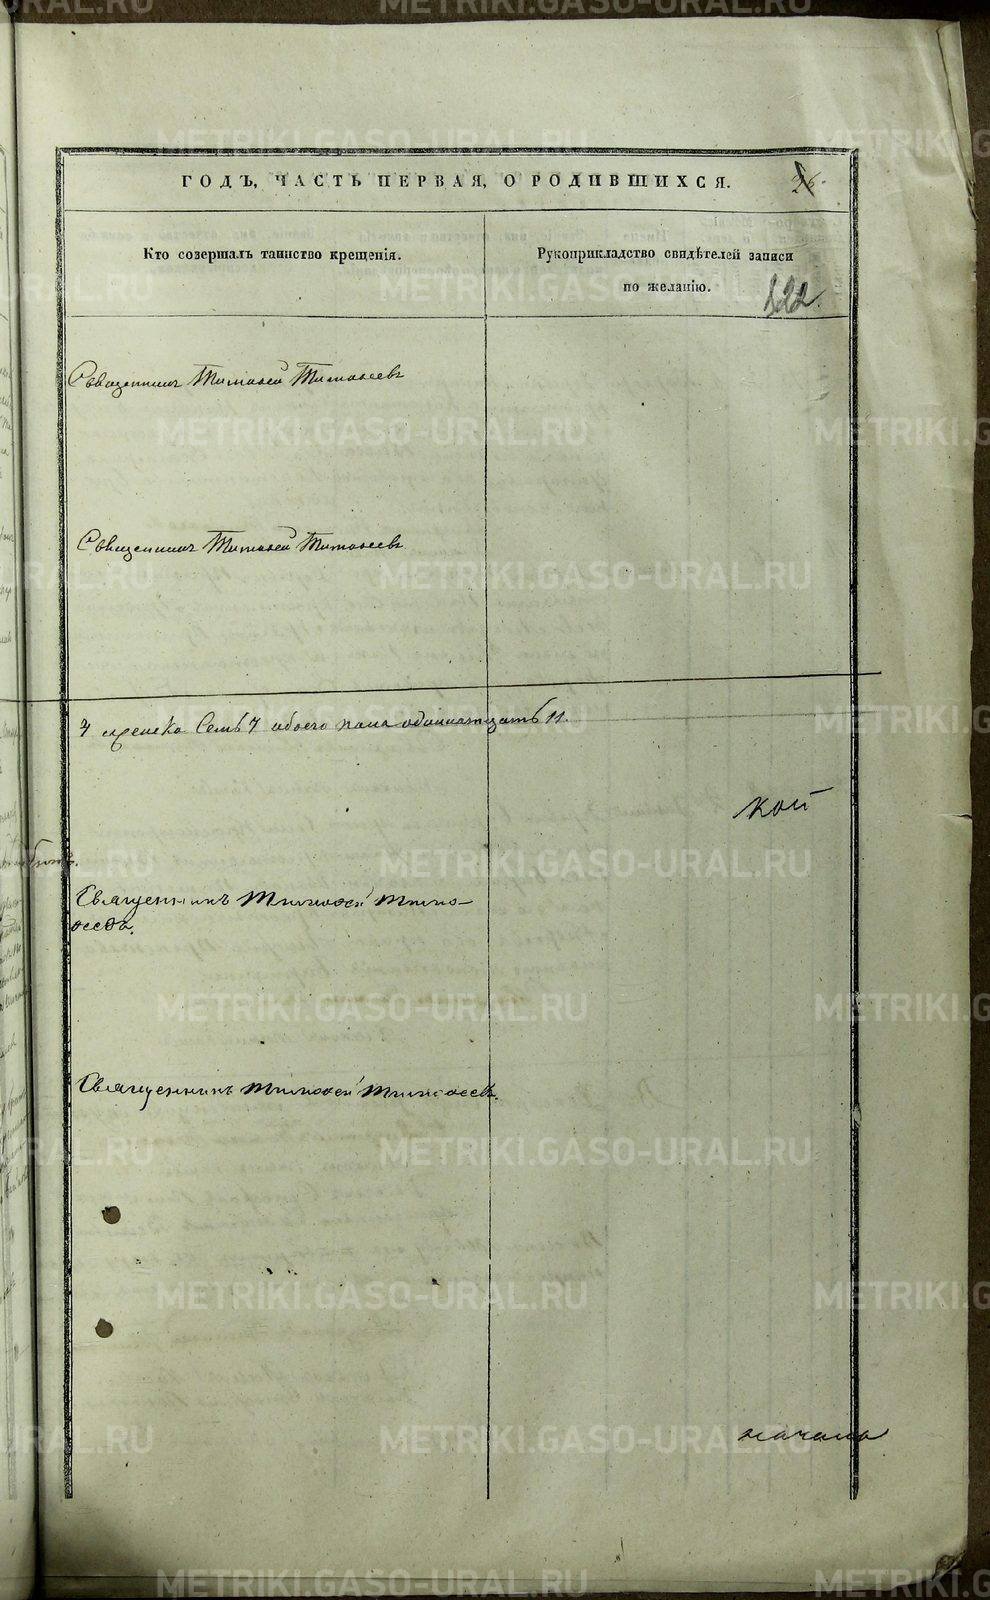 ГОДЪ, ЧАСТЬ ПЕРВАЯ, О РОДИВШИХСЯ.
26.
Кто совершалъ таинство крещенія.
Рукоприкладство свидѣтелей записи
по желанію.
122.
Священникъ Тимоѳей Тимоѳеевъ
Священникъ Тимоѳей Тимоѳеевъ
7 женска Семь 7 обоего пола одиннатцать 11.
кой
Священникъ Тимоѳей Тимо-
ѳеевъ.
Священникъ Тимоѳей Тимоѳеевъ.
начала
METRIKI.GASO-URAL.RU